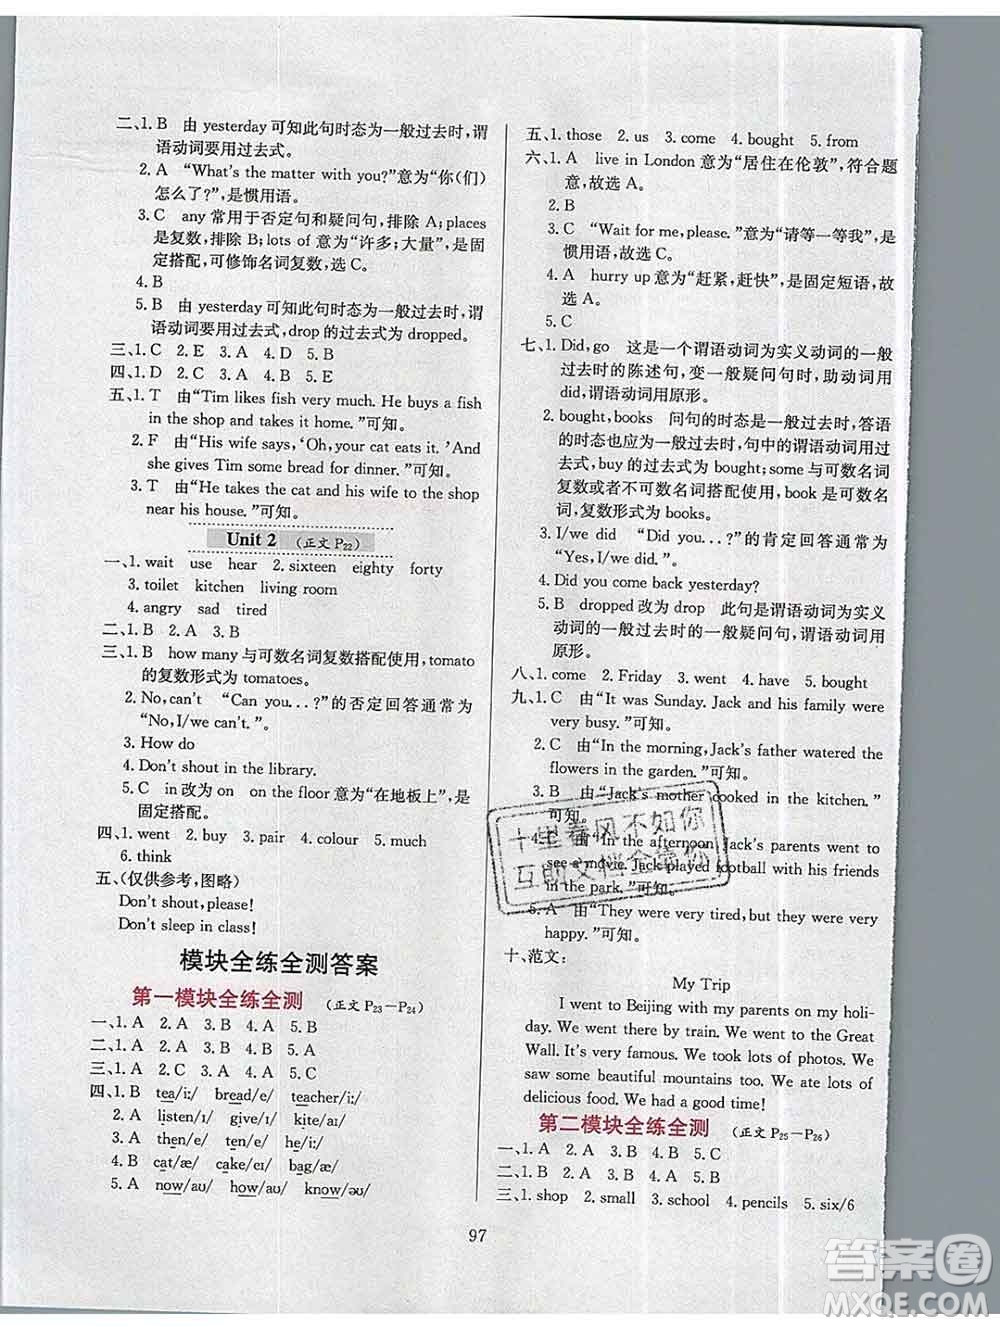 二、1. B 由 yesterday 可知此句时态为一般过去时,谓
语动词要用过去式。
2. A “What's the matter with you?”意为“你(们)
怎么了?”,是惯用语。
3. C any 常用于否定句和疑问句,排除 A; places
是复数,排除 B; lots of 意为“许多;大量”,是固
定搭配,可修饰名词复数,选 C。
4. B
5. B 由 yesterday 可知此句时态为一般过去时,谓
语动词要用过去式, drop 的过去式为 dropped.
三、1. C 2. E 3. A 4. D 5. B
四、1. D 2. C 3. A 4. B 5. E
五、1. T 由“Tim likes fish very much. He buys a fish
in the shop and takes it home.”可知。
2. F 由“His wife says, ‘Oh, your cat eats it.’And
she gives Tim some bread for dinner.”可知。
3. T 由“He takes the cat and his wife to the shop
near his house.”可知。
Unit 2 (正文 P22)
一、1. wait use hear 2. sixteen eighty forty
3. toilet kitchen living room
4. angry sad tired
二、1. B 2. A 3. B
三、1. B how many 与可数名词复数搭配使用, tomato
的复数形式为 tomatoes.
2. No, can't “Can you...?”的否定回答通常为
“No, I/we can't.”。
3. How do
4. Don't shout in the library.
5. C in 改为 on on the floor 意为“在地板上”,是
固定搭配。
四、1. went 2. buy 3. pair 4. colour 5. much
6. think
五、(仅供参考,图略)
Don't shout, please!
Don't sleep in class!
模块全练全测答案
第一模块全练全测 (正文 P23—P24)
一、1. A 2. A 3. B 4. A 5. B
二、1. B 2. A 3. B 4. A 5. B
三、1. A 2. C 3. A 4. A 5. B
四、1. B tea/iː/ bread/e/ teacher/iː/
2. A listen/ɪ/ give/ɪ/ kite/aɪ/
3. A then/e/ ten/e/ he/iː/
4. B cat/æ/ cake/eɪ/ bag/æ/
5. A now/aʊ/ how/aʊ/ know/əʊ/
五、1. those 2. us 3. come 4. bought 5. from
六、1. A live in London 意为“居住在伦敦”,符合题
意,故选 A。
2. B
3. C “Wait for me, please.”意为“请等一等我”,是
惯用语,故选 C。
4. A hurry up 意为“赶紧,赶快”,是固定短语,故
选 A。
5. C
七、1. Did, go 这是一个谓语动词为实义动词的一般
过去时的陈述句,变一般疑问句时,助动词用
did,谓语动词用原形。
2. bought, books 问句的时态是一般过去时,答语
的时态也应为一般过去时,句中的谓语动词用过
去式, buy 的过去式为 bought; some 与可数名词
复数或者不可数名词搭配使用, book 是可数名词,
复数形式为 books.
3. I/we did “Did you...?”的肯定回答通常为
“Yes, I/we did.”。
4. Did you come back yesterday?
5. B dropped 改为 drop 此句是谓语动词为实义
动词的一般过去时的一般疑问句,谓语动词用
原形。
八、1. come 2. Friday 3. went 4. have 5. bought
九、1. C 由“It was Sunday. Jack and his family were
very busy.”可知。
2. C 由“In the morning, Jack's father watered the
flowers in the garden.”可知。
3. B 由“Jack's mother cooked in the kitchen.”
可知。
4. B 由“In the afternoon, Jack's parents went to
see a movie. Jack played football with his friends
in the park.”可知。
5. A 由“They were very tired, but they were very
happy.”可知。
十、范文:
My Trip
I went to Beijing with my parents on my holi-
day. We went there by train. We went to the Great
Wall. It's very famous. We took lots of photos. We
saw some beautiful mountains too. We ate lots of
delicious food. We had a good time!
第二模块全练全测 (正文 P25—P26)
一、1. A 2. A 3. A 4. B 5. C
二、1. B 2. A 3. A 4. B 5. A
三、1. shop 2. small 3. school 4. pencils 5. six/6
97
十里春风不如你
答案圈
MXQE.COM